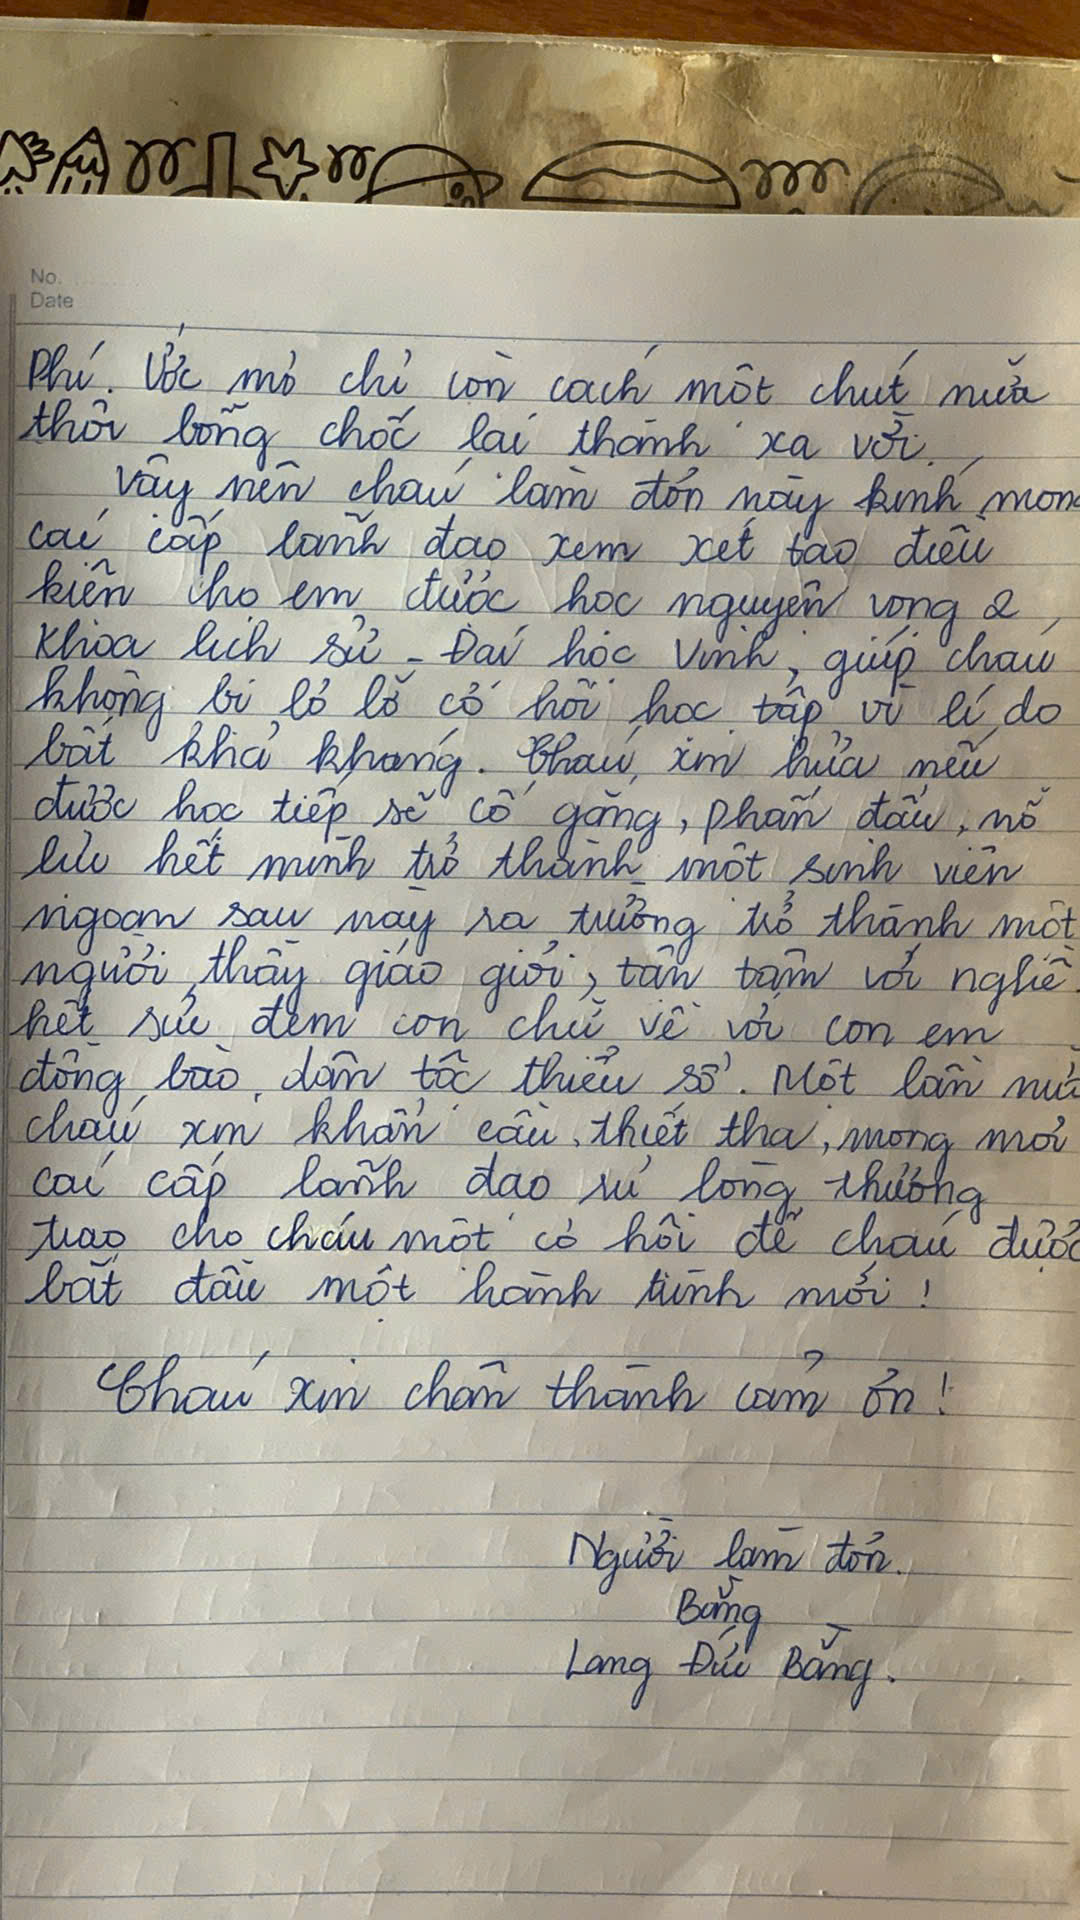 No.
Date
phí. Ước mơ chỉ còn cách một chút nữa
thôi bỗng chốc lại thành xa vời.
Vậy nên cháu làm đơn này kính mong
các cấp lãnh đạo xem xét tạo điều
kiện cho em được học nguyện vọng 2
Khoa lịch sử - Đại học Vinh, giúp cháu
không bị lỡ lỡ cơ hội học tập vì lí do
bất khả kháng. Cháu xin hứa nếu
được học tiếp sẽ cố gắng, phấn đấu, nỗ
lực hết mình trở thành một sinh viên
ngoan sau này ra trường trở thành một
người thầy giáo giỏi, tận tâm với nghề.
hết sức đem con chữ về với con em
đồng bào dân tộc thiểu số. Một lần nữa
cháu xin khẩn cầu, thiết tha, mong mỏi
các cấp lãnh đạo rủ lòng thương
trao cho cháu một cơ hội để cháu được
bắt đầu một hành trình mới!
Cháu xin chân thành cảm ơn!
Người làm đơn.
Bằng
Lang Đức Bằng.